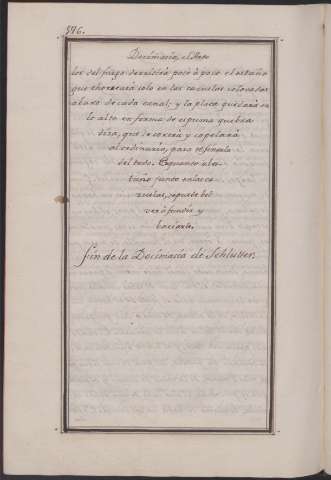 576.
Docimacia, el
dor del fuego derretirá poco à poco el estaño
que chorreará solo en las cazuelas colocadas
abaxo de cada canal; y la plata quedará en
lo alto en forma de espuma quebra
diza, que se cocerá y copelará
al ordinario, para
del todo. En quanto al es
taño junto en las ca
zuelas, se puede bol
ver à fundir y
baciarle.
fin de la Docimacia de Schlutter.